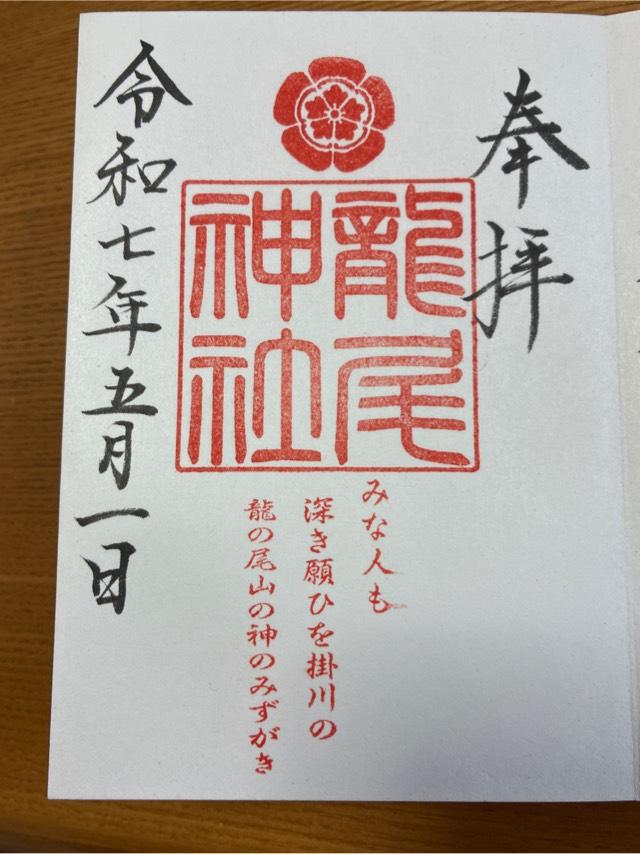 奉拝
龍尾
神社
みな人も
深き願ひを掛川の
龍の尾山の神のみずがき
令和七年五月一日